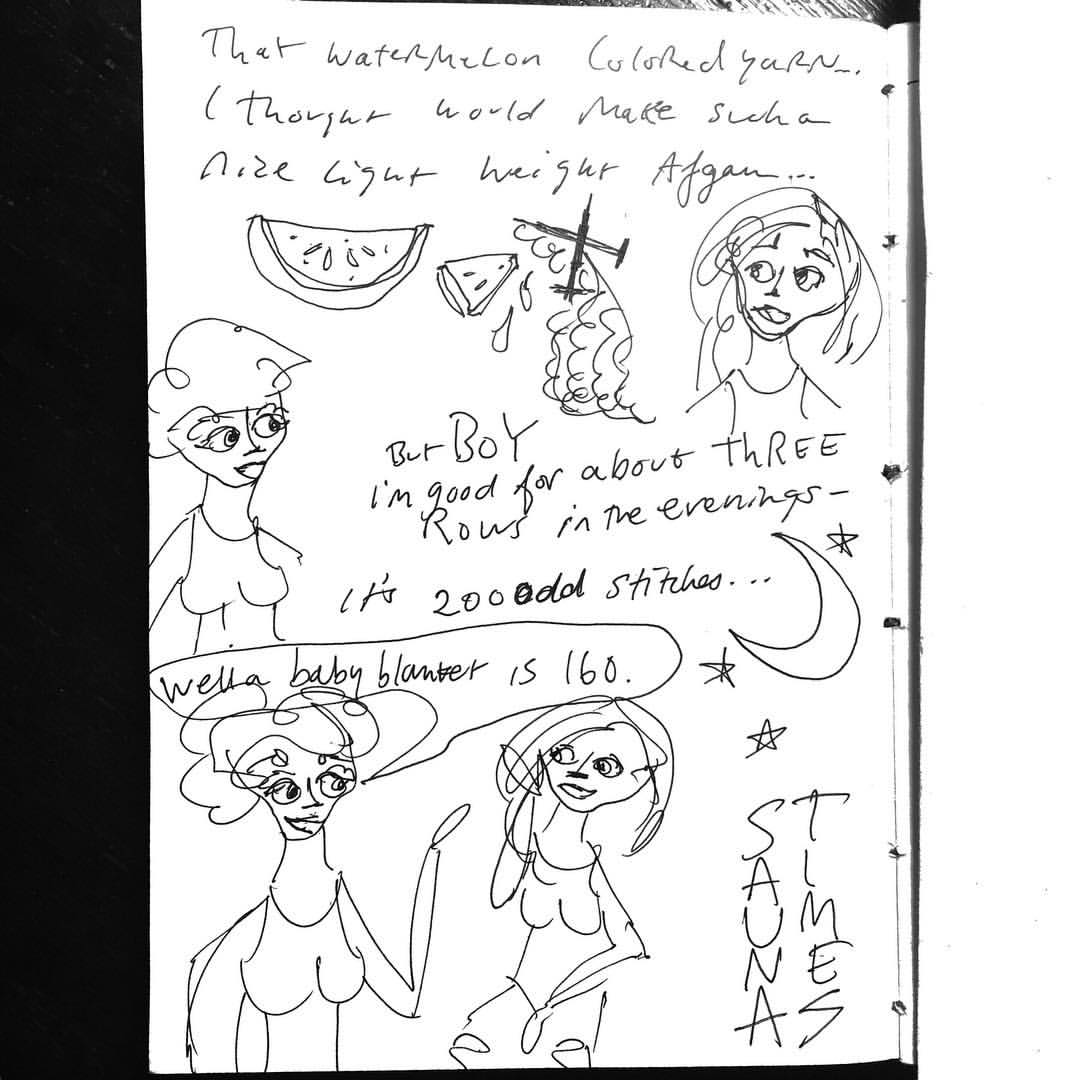 That watermelon Colored yarn...
I thought would Make such a
nize light weight Afgan...
But BOY
i'm good for about THREE
Rows in the evenings-
It's 200 odd stitches...
Well a baby blanket is 160.
SAUNA
TIMES